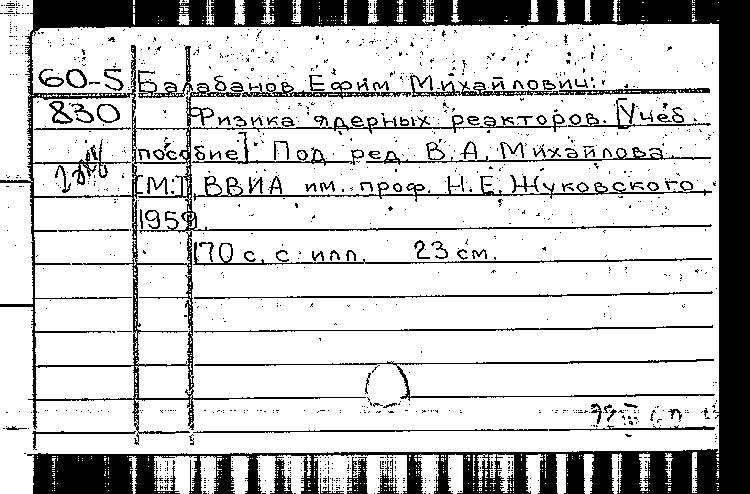 60-5 Балабанов Ефим Михайлович.
830 Физика ядерных реакторов. [Учеб.
пособие]. Под ред. В.А. Михайлова
[М.], ВВИА им. проф. Н.Е. Жуковского,
1959.
170 с. с илл. 23 см.